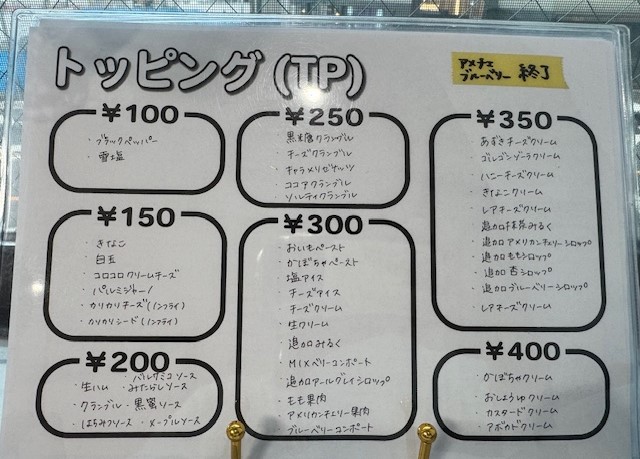 トッピング(TP)
アメチェ
ブルーベリー 終了
¥100
・ブラックペッパー
・雪塩
¥150
・きなこ
・白玉
・コロコロクリームチーズ
・パルミジャーノ
・カリカリチーズ(ノンフライ)
・カリカリシード(ノンフライ)
¥200
・生ハム ・バルサミコソース
・みたらしソース
・クランブル ・黒蜜ソース
・はちみつソース ・メープルソース
¥250
・黒米唐クランブル
・チーズクランブル
・キャラメリゼナッツ
・ココアクランブル
・ソルティクランブル
¥300
・おいもペースト
・かぼちゃペースト
・塩アイス
・チーズアイス
・チーズクリーム
・生クリーム
・追加みるく
・MIXベリーコンポート
・追加アールグレイシロップ
・もも果肉
・アメリカンチェリー果肉
・ブルーベリーコンポート
¥350
・あずきチーズクリーム
・ゴルゴンゾーラクリーム
・ハニーチーズクリーム
・きなこクリーム
・レアチーズクリーム
・追加抹茶みるく
・追加アメリカンチェリーシロップ
・追加ももシロップ
・追加杏シロップ
・追加ブルーベリーシロップ
・レアチーズクリーム
¥400
・かぼちゃクリーム
・おしょうゆクリーム
・カスタードクリーム
・アボカドクリーム